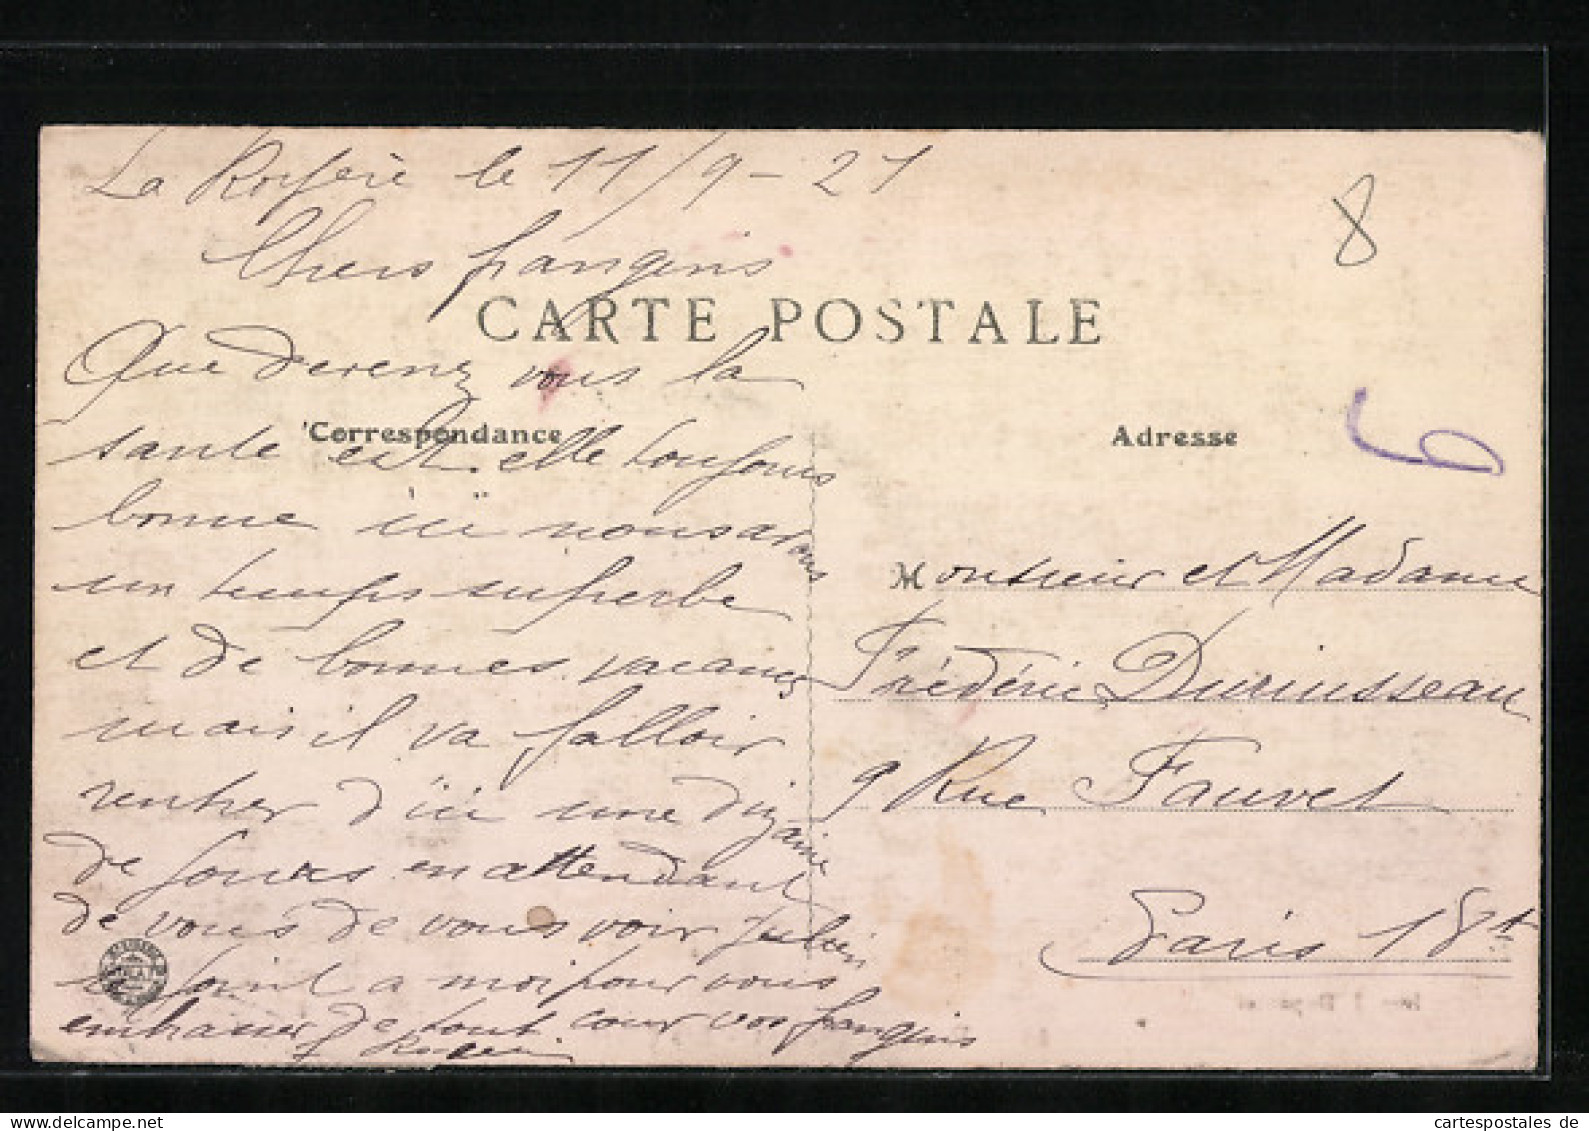 le 11/9-21
Chers frangins
CARTE POSTALE
Que devenez vous la
sante est elle toujours
bonne ici nous avons
un temps superbe
et de bonnes vacances
mais il va falloir
rentrer d'ici une dizaine
de jours en attendant
de vous de vous voir Julien
se joint a moi pour vous
embrasser de tout cœur vos frangins
Correspondance
Adresse
Monsieur et Madame
Frédéric
9 Rue Fauvet
Paris 18t
8
6
cartespostales de